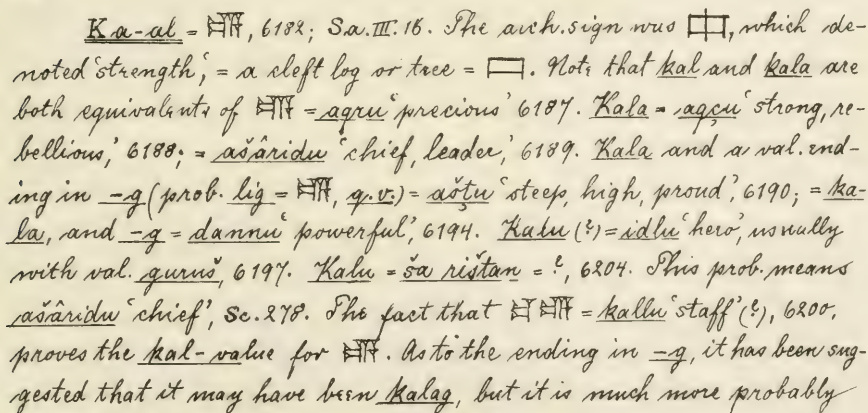 Ka-al = 𒆗, 6182; Sa. III. 16. The arch. sign was , which de-
noted 'strength', = a cleft log or tree = ▭. Note that kal and kala are
both equivalents of 𒆗 = aqru 'precious' 6187. Kala = aqçu 'strong, re-
bellious,' 6188; = ašâridu 'chief, leader,' 6189. Kala and a val. end-
ing in -g (prob. lig = 𒆗, q.v.) = ašṭu 'steep, high, proud', 6190; = ka-
la, and -g = dannu 'powerful', 6194. Kalu (?) = idlu 'hero', usually
with val. guruš, 6197. Kalu = ša rištan = ?, 6204. This prob. means
ašâridu 'chief', Sc. 278. The fact that 𒄑 𒆗 = kallu 'staff' (?), 6200,
proves the kal-value for 𒆗. As to the ending in -g, it has been sug-
gested that it may have been kalag, but it is much more probably